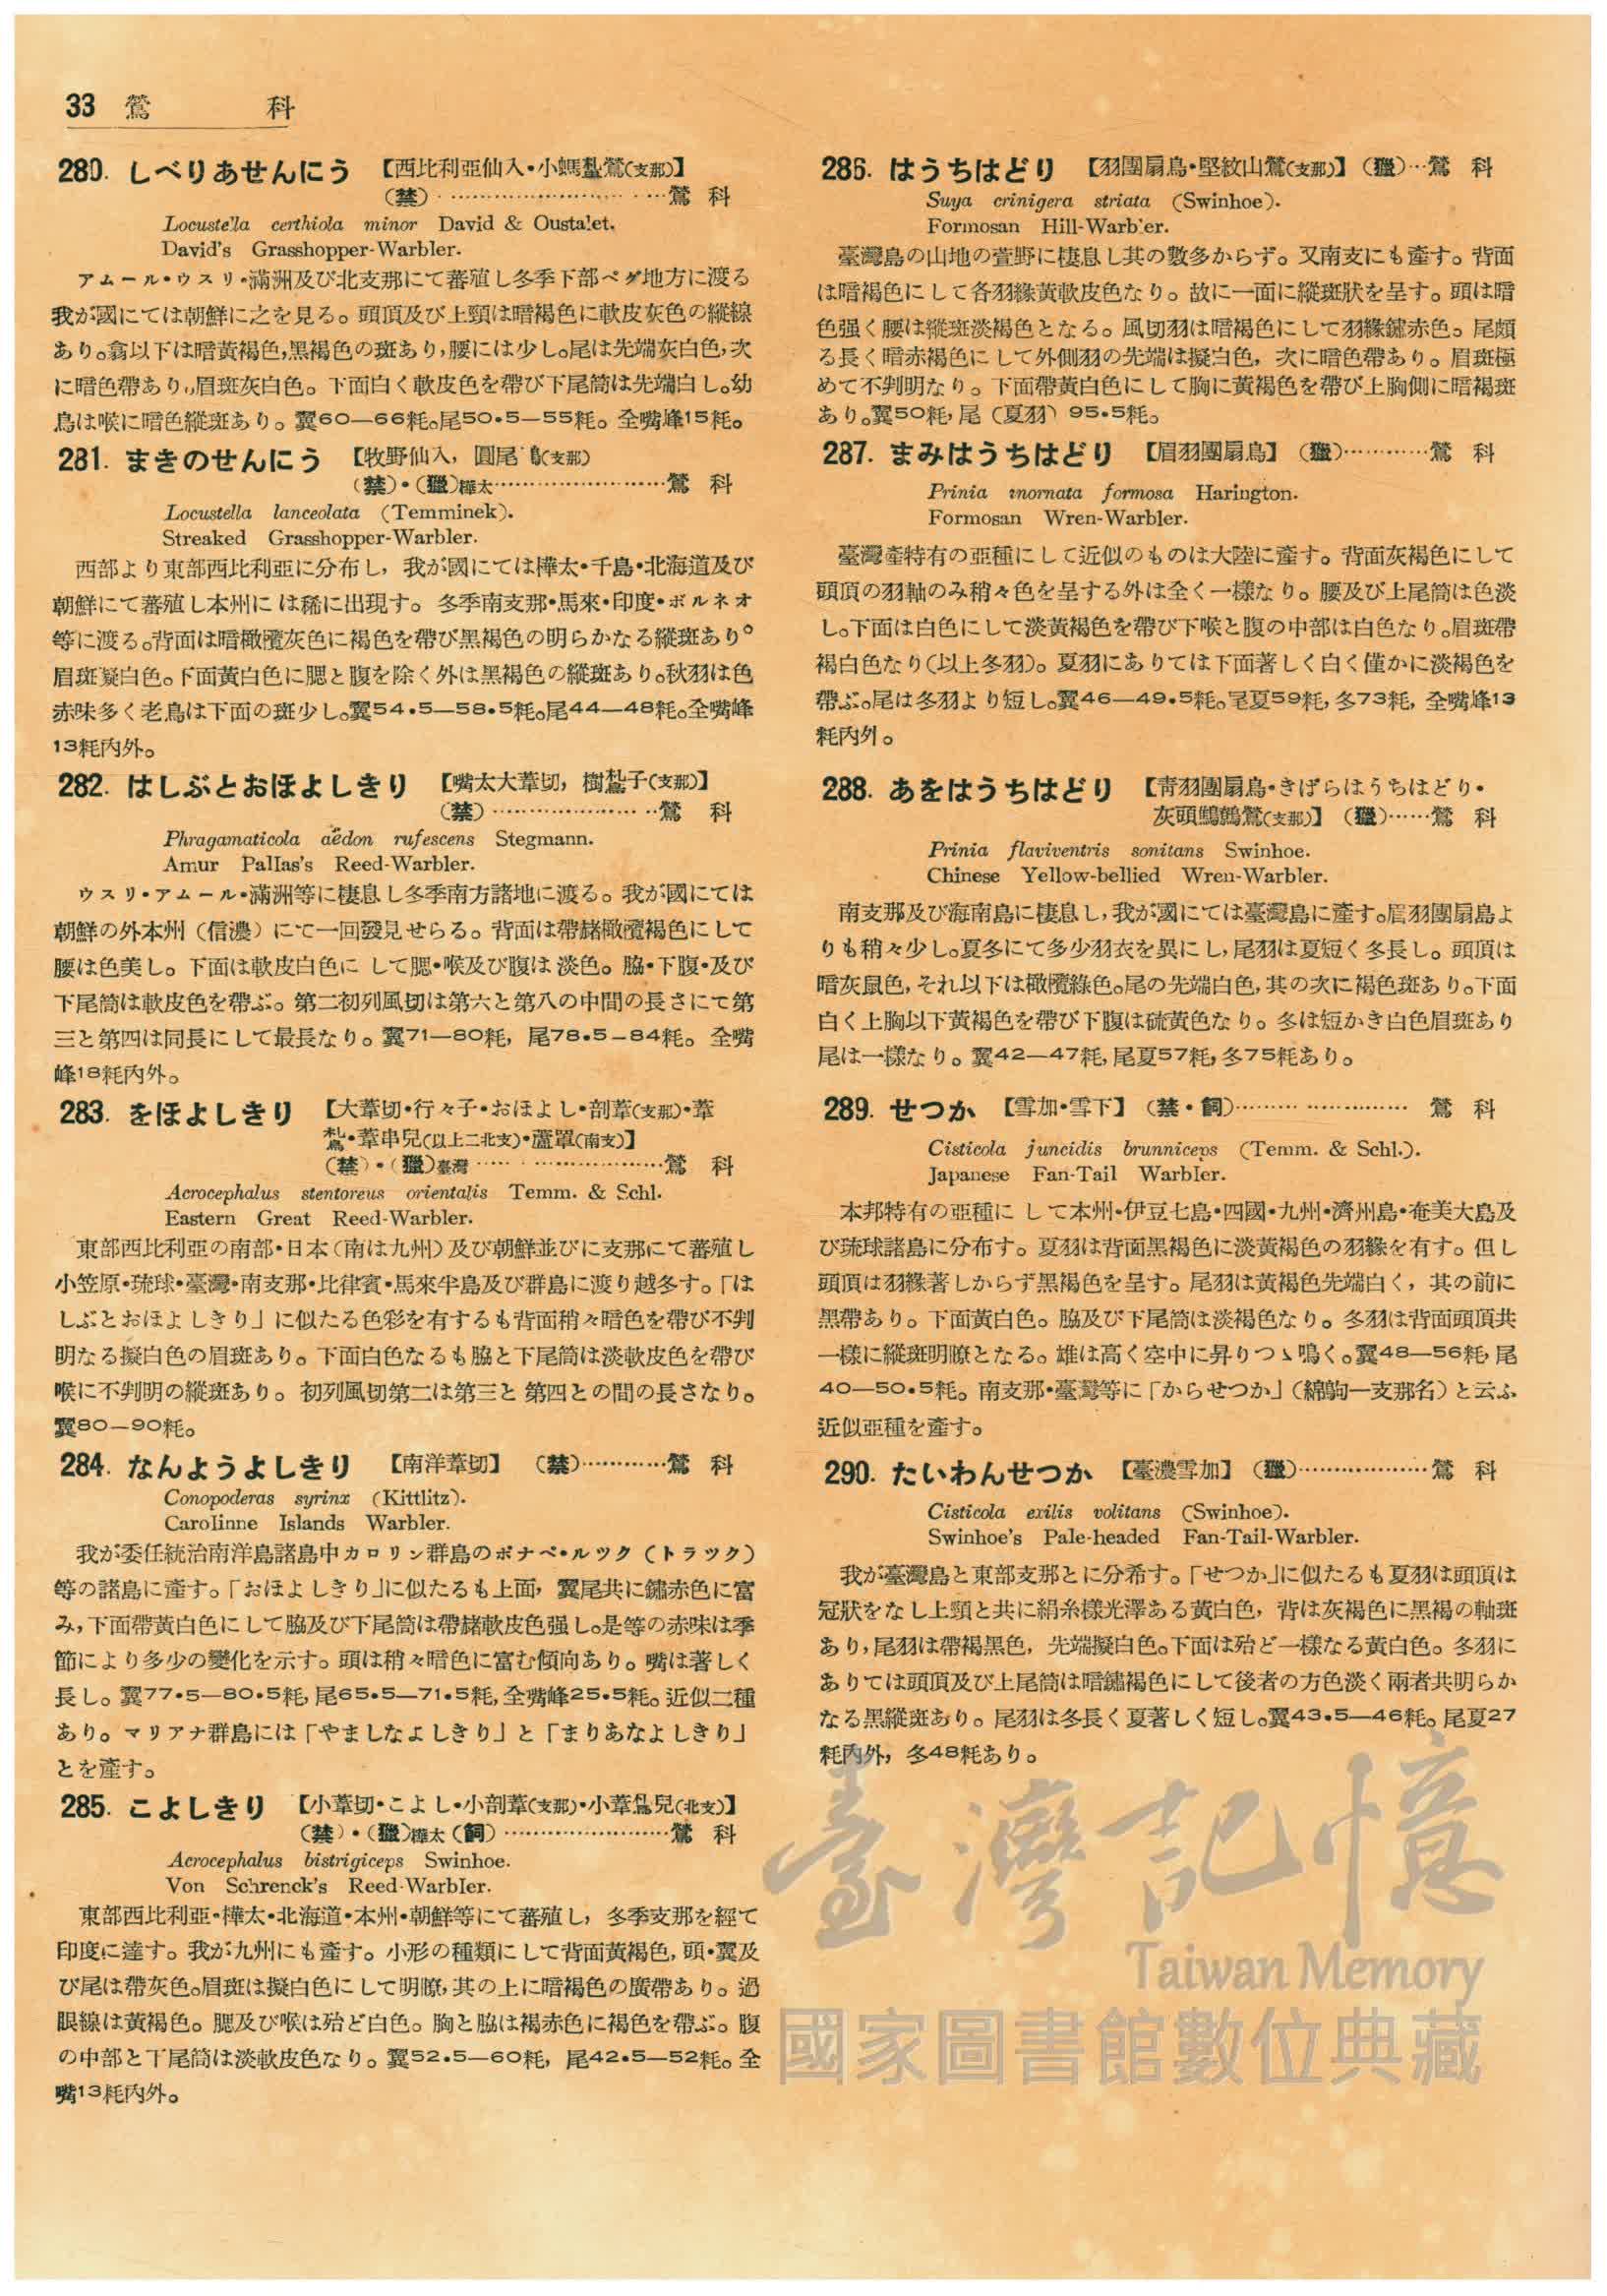 33 鶯 科
280. しべりあせんにう 【西比利亞仙入・小螞鶯(支那)】
(禁)……………………鶯 科
Locustella certhiola minor David & Oustalet.
David's Grasshopper-Warbler.
アムール・ウスリ・滿洲及び北支那にて蕃殖し冬季下部ペグ地方に渡る
我が國にては朝鮮に之を見る。頭頂及び上頸は暗褐色に軟皮灰色の縱線
あり。翕以下は暗黃褐色,黑褐色の斑あり,腰には少し。尾は先端灰白色,次
に暗色帶あり,眉斑灰白色。下面白く軟皮色を帶び下尾筒は先端白し。幼
鳥は喉に暗色縱斑あり。翼60—66粍。尾50・5—55粍。全嘴峰15粍。
281. まきのせんにう 【牧野仙入,圓尾(支那)
(禁)・(獵)樺太……………………鶯 科
Locustella lanceolata (Temminek).
Streaked Grasshopper-Warbler.
西部より東部西比利亞に分布し,我が國にては樺太・千島・北海道及び
朝鮮にて蕃殖し本州には稀に出現す。冬季南支那・馬來・印度・ボルネオ
等に渡る。背面は暗橄欖灰色に褐色を帶び黑褐色の明らかなる縱斑あり。
眉斑擬白色。下面黃白色に腮と腹を除く外は黑褐色の縱斑あり。秋羽は色
赤味多く老鳥は下面の斑少し。翼54・5—58・5粍。尾44—48粍。全嘴峰
13粍內外。
282. はしぶとおほよしきり 【嘴太大葦切,樹鶯子(支那)】
(禁)……………………鶯 科
Phragamaticola aëdon rufescens Stegmann.
Amur Pallas's Reed-Warbler.
ウスリ・アムール・滿洲等に棲息し冬季南方諸地に渡る。我が國にては
朝鮮の外本州(信濃)にて一回發見せらる。背面は帶赭橄欖褐色にして
腰は色美し。下面は軟皮白色にして腮・喉及び腹は淡色。脇・下腹・及び
下尾筒は軟皮色を帶ぶ。第二初列風切は第六と第八の中間の長さにて第
三と第四は同長にして最長なり。翼71—80粍,尾78・5—84粍。全嘴
峰18粍內外。
283. をほよしきり 【大葦切・行々子・おほよし・剖葦(支那)・葦
・葦串兒(以上二北支)・蘆單(南支)】
(禁)・(獵)臺灣……………………鶯 科
Acrocephalus stentoreus orientalis Temm. & Schl.
Eastern Great Reed-Warbler.
東部西比利亞の南部・日本(南は九州)及び朝鮮並びに支那にて蕃殖し
小笠原・琉球・臺灣・南支那・比律賓・馬來半島及び群島に渡り越冬す。「は
しぶとおほよしきり」に似たる色彩を有するも背面稍々暗色を帶び不判
明なる擬白色の眉斑あり。下面白色なるも脇と下尾筒は淡軟皮色を帶び
喉に不判明の縱斑あり。初列風切第二は第三と第四との間の長さなり。
翼80—90粍。
284. なんようよしきり 【南洋葦切】 (禁)…………鶯 科
Conopoderas syrinx (Kittlitz).
Carolinne Islands Warbler.
我が委任統治南洋島諸島中カロリン群島のポナペ・ルツク(トラツク)
等の諸島に產す。「おほよしきり」に似たるも上面,翼尾共に鏽赤色に富
み,下面帶黃白色にして脇及び下尾筒は帶赭軟皮色强し。是等の赤味は季
節により多少の變化を示す。頭は稍々暗色に富む傾向あり。嘴は著しく
長し。翼77・5—80・5粍,尾65・5—71・5粍,全嘴峰25・5粍。近似二種
あり。マリアナ群島には「やましなよしきり」と「まりあなよしきり」
とを產す。
285. こよしきり 【小葦切・こよし・小剖葦(支那)・小葦兒(北支)】
(禁)・(獵)樺太(飼)……………………鶯 科
Acrocephalus bistrigiceps Swinhoe.
Von Schrenck's Reed-Warbler.
東部西比利亞・樺太・北海道・本州・朝鮮等にて蕃殖し,冬季支那を經て
印度に達す。我が九州にも產す。小形の種類にして背面黃褐色,頭・翼及
び尾は帶灰色。眉斑は擬白色にして明瞭,其の上に暗褐色の廣帶あり。過
眼線は黃褐色。腮及び喉は殆ど白色。胸と脇は褐赤色に褐色を帶ぶ。腹
の中部と下尾筒は淡軟皮色なり。翼52・5—60粍,尾42・5—52粍。全
嘴13粍內外。
286. はうちはどり 【羽團扇鳥・堅紋山鶯(支那)】(獵)…鶯 科
Suya crinigera striata (Swinhoe).
Formosan Hill-Warbler.
臺灣島の山地の萱野に棲息し其の數多からず。又南支にも產す。背面
は暗褐色にして各羽緣黃軟皮色なり。故に一面に縱斑狀を呈す。頭は暗
色强く腰は縱斑淡褐色となる。風切羽は暗褐色にして羽緣鏽赤色。尾頗
る長く暗赤褐色にして外側羽の先端は擬白色,次に暗色帶あり。眉斑極
めて不判明なり。下面帶黃白色にして胸に黃褐色を帶び上胸側に暗褐斑
あり。翼50粍,尾(夏羽)95・5粍。
287. まみはうちはどり 【眉羽團扇鳥】(獵)…………鶯 科
Prinia inornata formosa Harington.
Formosan Wren-Warbler.
臺灣產特有の亞種にして近似のものは大陸に產す。背面灰褐色にして
頭頂の羽軸のみ稍々色を呈する外は全く一樣なり。腰及び上尾筒は色淡
し。下面は白色にして淡黃褐色を帶び下喉と腹の中部は白色なり。眉斑帶
褐白色なり(以上冬羽)。夏羽にありては下面著しく白く僅かに淡褐色を
帶ぶ。尾は冬羽より短し。翼46—49・5粍。尾夏59粍,冬73粍,全嘴峰13
粍內外。
288. あをはうちはどり 【靑羽團扇鳥・きばらはうちはどり・
灰頭鷦鶺鶯(支那)】(獵)……鶯 科
Prinia flaviventris sonitans Swinhoe.
Chinese Yellow-bellied Wren-Warbler.
南支那及び海南島に棲息し,我が國にては臺灣島に產す。眉羽團扇鳥よ
りも稍々少し。夏冬にて多少羽衣を異にし,尾羽は夏短く冬長し。頭頂は
暗灰鼠色,それ以下は橄欖綠色。尾の先端白色,其の次に褐色斑あり。下面
白く上胸以下黃褐色を帶び下腹は硫黃色なり。冬は短かき白色眉斑あり
尾は一樣なり。翼42—47粍,尾夏57粍,冬75粍あり。
289. せつか 【雪加・雪下】(禁・飼)……………………鶯 科
Cisticola juncidis brunniceps (Temm. & Schl.).
Japanese Fan-Tail Warbler.
本邦特有の亞種にして本州・伊豆七島・四國・九州・濟州島・奄美大島及
び琉球諸島に分布す。夏羽は背面黑褐色に淡黃褐色の羽緣を有す。但し
頭頂は羽緣著しからず黑褐色を呈す。尾羽は黃褐色先端白く,其の前に
黑帶あり。下面黃白色。脇及び下尾筒は淡褐色なり。冬羽は背面頭頂共
一樣に縱斑明瞭となる。雄は高く空中に昇りつゝ鳴く。翼48—56粍,尾
40—50・5粍。南支那・臺灣等に「からせつか」(綿鴝—支那名)と云ふ
近似亞種を產す。
290. たいわんせつか 【臺灣雪加】(獵)………………鶯 科
Cisticola exilis volitans (Swinhoe).
Swinhoe's Pale-headed Fan-Tail-Warbler.
我が臺灣島と東部支那とに分希す。「せつか」に似たるも夏羽は頭頂は
冠狀をなし上頸と共に絹糸樣光澤ある黃白色,背は灰褐色に黑褐の軸斑
あり,尾羽は帶褐黑色,先端擬白色。下面は殆ど一樣なる黃白色。冬羽に
ありては頭頂及び上尾筒は暗鏽褐色にして後者の方色淡く兩者共明らか
なる黑縱斑あり。尾羽は冬長く夏著しく短し。翼43・5—46粍。尾夏27
粍內外,冬48粍あり。
臺灣記憶
Taiwan Memory
國家圖書館數位典藏